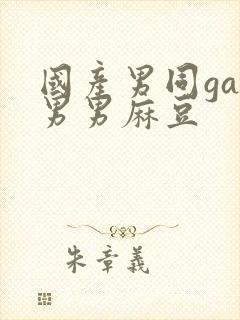 國産男同ga
男男麻豆
朱章義